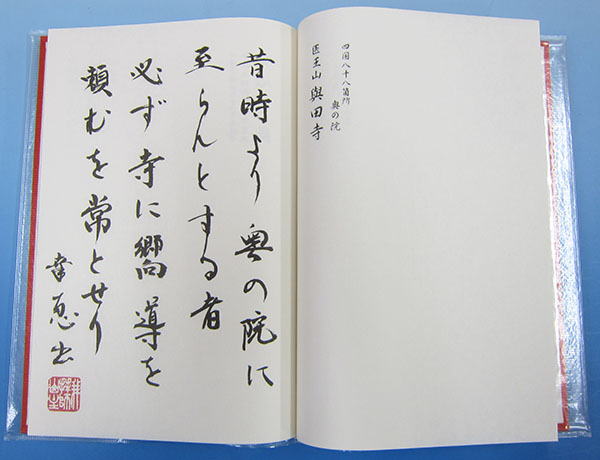 四国八十八箇所
奥の院
医王山 與田寺
昔時より奥の院に
至らんとする者
必ず寺に嚮導を
頼むを常とせり